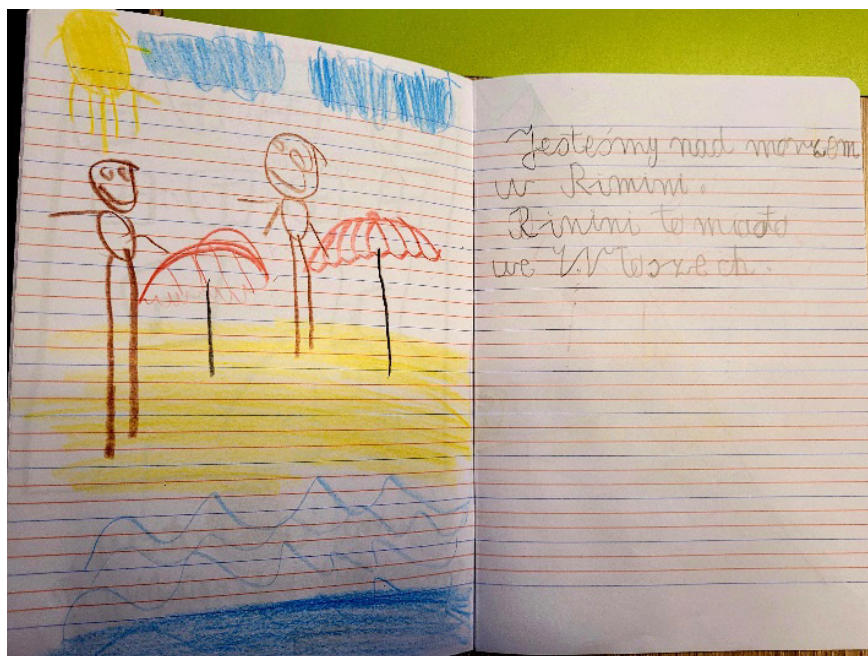 Jesteśmy nad morzem
w Rimini.
Rinini to miasto
we Włoszech.